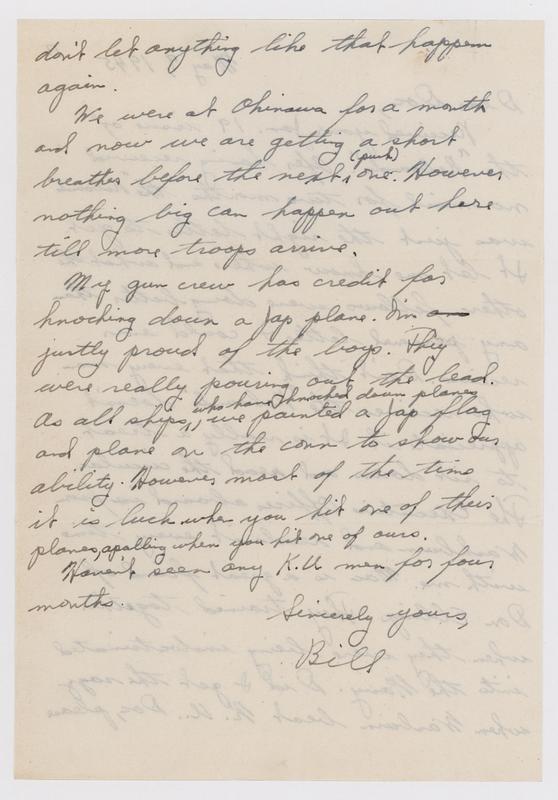 don't let anything like that happen
again.
We were at Okinawa for a month
and now we are getting a short
breather before the next (push) one. However
nothing big can happen out here
till more troops arrive.
My gun crew has credit for
knocking down a Jap plane. I'm
justly proud of the boys. They
were really pouring out the lead.
As all ships, who have knocked down planes, we painted a Jap flag
and plane on the conn to show our
ability. However most of the time
it is luck when you hit one of their
planes, apalling when you hit one of ours.
Haven't seen any K.U. men for four
months.
Sincerely yours,
Bill